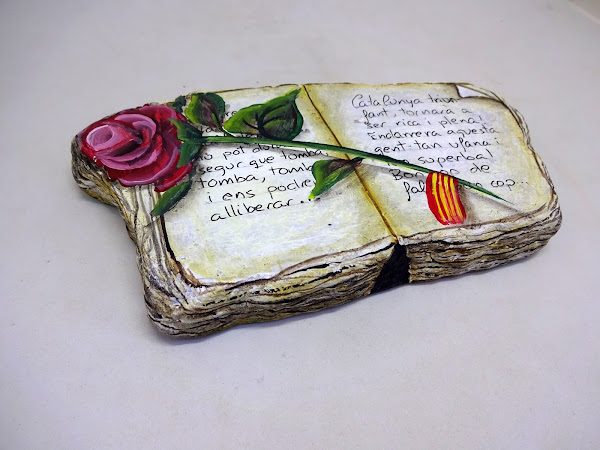 pot
segur que tomba
tomba, tomba
i ens
alliberar...
Catalunya
fant, tornarà a
ser rica i plena!
Endarrera aquesta
gent tan ufana i
superba!
de
cop...